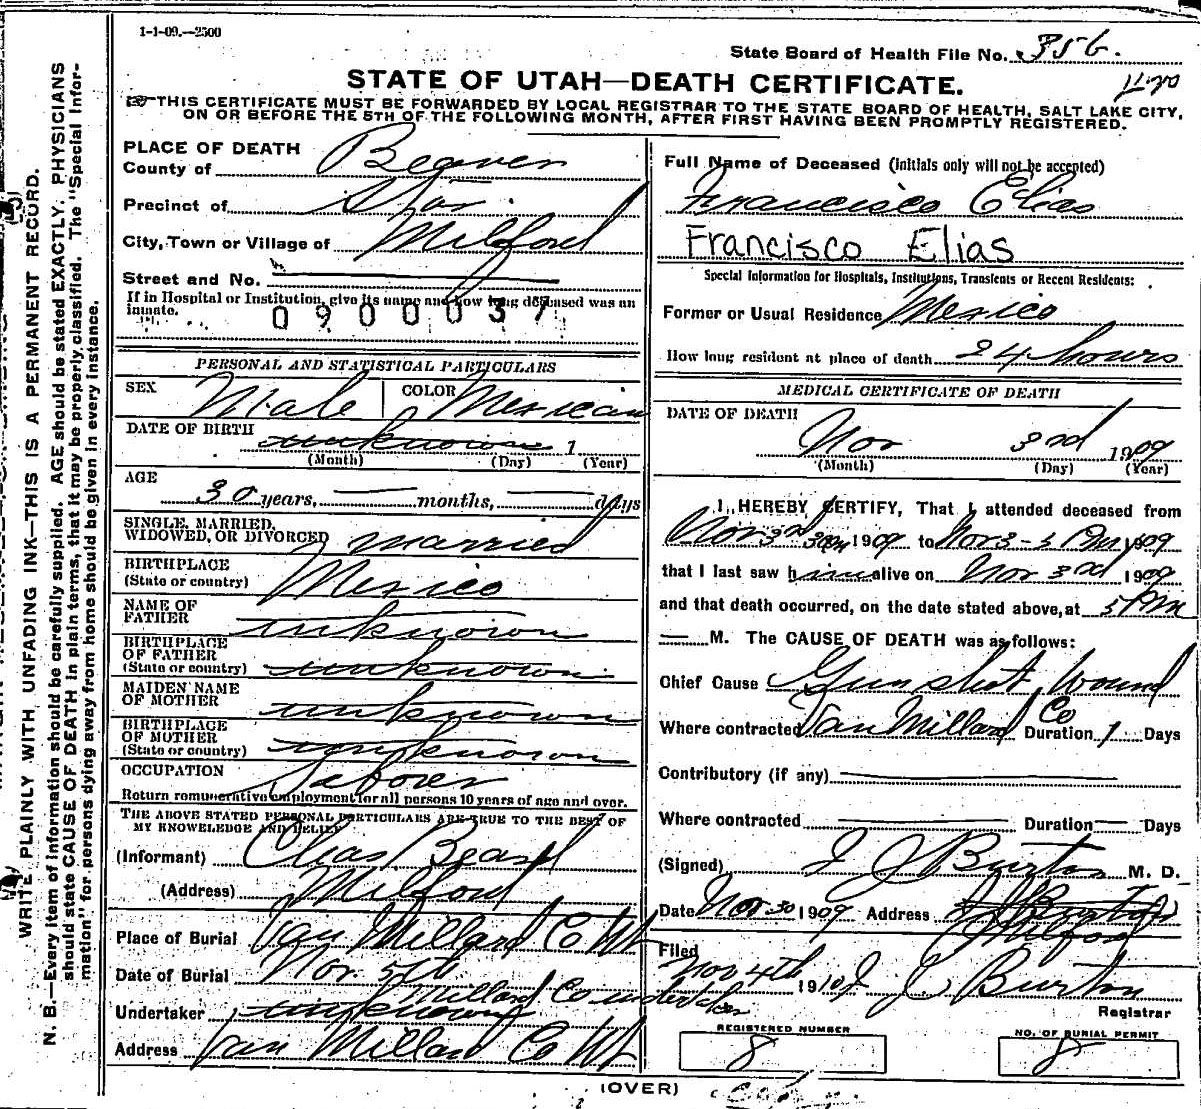 1-1-09.--2500
State Board of Health File No. 356.
STATE OF UTAH—DEATH CERTIFICATE.
THIS CERTIFICATE MUST BE FORWARDED BY LOCAL REGISTRAR TO THE STATE BOARD OF HEALTH, SALT LAKE CITY,
ON OR BEFORE THE 5TH OF THE FOLLOWING MONTH, AFTER FIRST HAVING BEEN PROMPTLY REGISTERED.
WRITE PLAINLY WITH UNFADING INK—THIS IS A PERMANENT RECORD.
N. B.—Every item of information should be carefully supplied. AGE should be stated EXACTLY. PHYSICIANS
should state CAUSE OF DEATH in plain terms, that it may be properly classified. The "Special Infor-
mation" for persons dying away from home should be given in every instance.
PLACE OF DEATH
County of Beaver
Precinct of Star
City, Town or Village of Milford
Street and No.
If in Hospital or Institution, give its name and how long deceased was an
inmate.
0900037
PERSONAL AND STATISTICAL PARTICULARS
SEX Male COLOR Mexican
DATE OF BIRTH unknown 1
(Month) (Day) (Year)
AGE
30 years, — months, — days
SINGLE, MARRIED,
WIDOWED, OR DIVORCED married
BIRTHPLACE
(State or country) Mexico
NAME OF
FATHER unknown
BIRTHPLACE
OF FATHER
(State or country) unknown
MAIDEN NAME
OF MOTHER unknown
BIRTHPLACE
OF MOTHER
(State or country) unknown
OCCUPATION Laborer
Return remunerative employment for all persons 10 years of age and over.
THE ABOVE STATED PERSONAL PARTICULARS ARE TRUE TO THE BEST OF
MY KNOWLEDGE AND BELIEF
(Informant) Chas
(Address) Milford
Place of Burial Van Millard Co Ut
Date of Burial Nov. 5th
Millard Co undertaker
Undertaker unknown
Address Van Millard Co Ut
Full Name of Deceased (initials only will not be accepted)
Francisco Elias
Francisco Elias
Special Information for Hospitals, Institutions, Transients or Recent Residents:
Former or Usual Residence Mexico
How long resident at place of death 24 hours
MEDICAL CERTIFICATE OF DEATH
DATE OF DEATH
Nov 3rd 1909
(Month) (Day) (Year)
I, HEREBY CERTIFY, That I attended deceased from
Nov 3rd 1909 to Nov 3-5 Pm 1909
that I last saw him alive on Nov 3rd 1909
and that death occurred, on the date stated above, at 5 PM
— M. The CAUSE OF DEATH was as follows:
Chief Cause Gun shot Wound
Where contracted Van Millard Co Duration 1 Days
Contributory (if any)
Where contracted Duration — Days
(Signed) J J Burton M. D.
Date Nov 30 1909 Address Milford
Filed
Nov 4th 190 J J Burton
Registrar
REGISTERED NUMBER
8
NO. OF BURIAL PERMIT
8
(OVER)